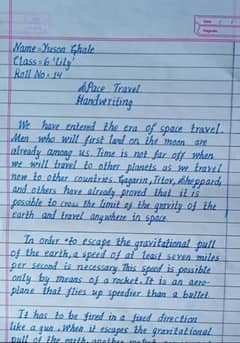 Name = Yuson Ghale
Class = 6 'Lily'
Roll No = 14
Space Travel
Handwriting
We have entered the era of space travel.
Men who will first land on the moon are
already among us. Time is not far off when
we will travel to other planets as we travel
now to other countries. Gagarin, Titov, Sheppard,
and others have already proved that it is
possible to cross the limit of the gravity of the
earth and travel anywhere in space.
In order to escape the gravitational pull
of the earth, a speed of at least seven miles
per second is necessary. This speed is possible
only by means of a rocket. It is an aero-
plane that flies up speedier than a bullet.
It has to be fired in a fixed direction
like a gun. When it escapes the gravitational
pull of the earth, another